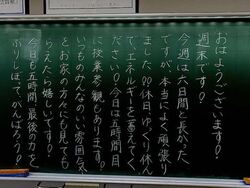 おはようございます！
週末です！
今週は六日間と長かった
ですが、本当によく頑張り
ました。休日ゆっくり休ん
で、エネルギーを蓄えてく
ださい！今日は五時間目
に授業参観もあります。
いつものみんなのいい雰囲気
をお家の方々にも見ても
らえたら嬉しいです！
今日も五時間、最後の力を
ふりしぼって、がんばろう！